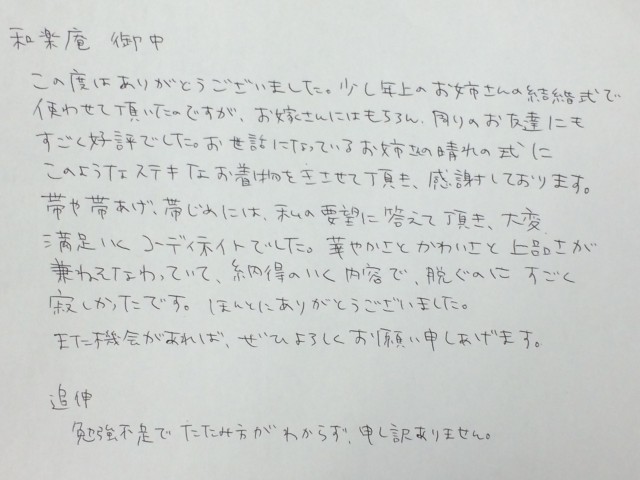 和楽庵 御中
この度はありがとうございました。少し年上のお姉さんの結婚式で
使わせて頂いたのですが、お嫁さんにはもちろん、周りのお友達にも
すごく好評でした。お世話になっているお姉さんの晴れの式に
このようなステキなお着物をきさせて頂き、感謝しております。
帯や帯あげ、帯じめには、私の要望に答えて頂き、大変
満足いくコーディネイトでした。華やかさとかわいさと上品さが
兼ねそなわっていて、納得のいく内容で、脱ぐのにすごく
寂しかったです。ほんとにありがとうございました。
また機会があれば、ぜひよろしくお願い申しあげます。
追伸
勉強不足でたたみ方がわからず、申し訳ありません。